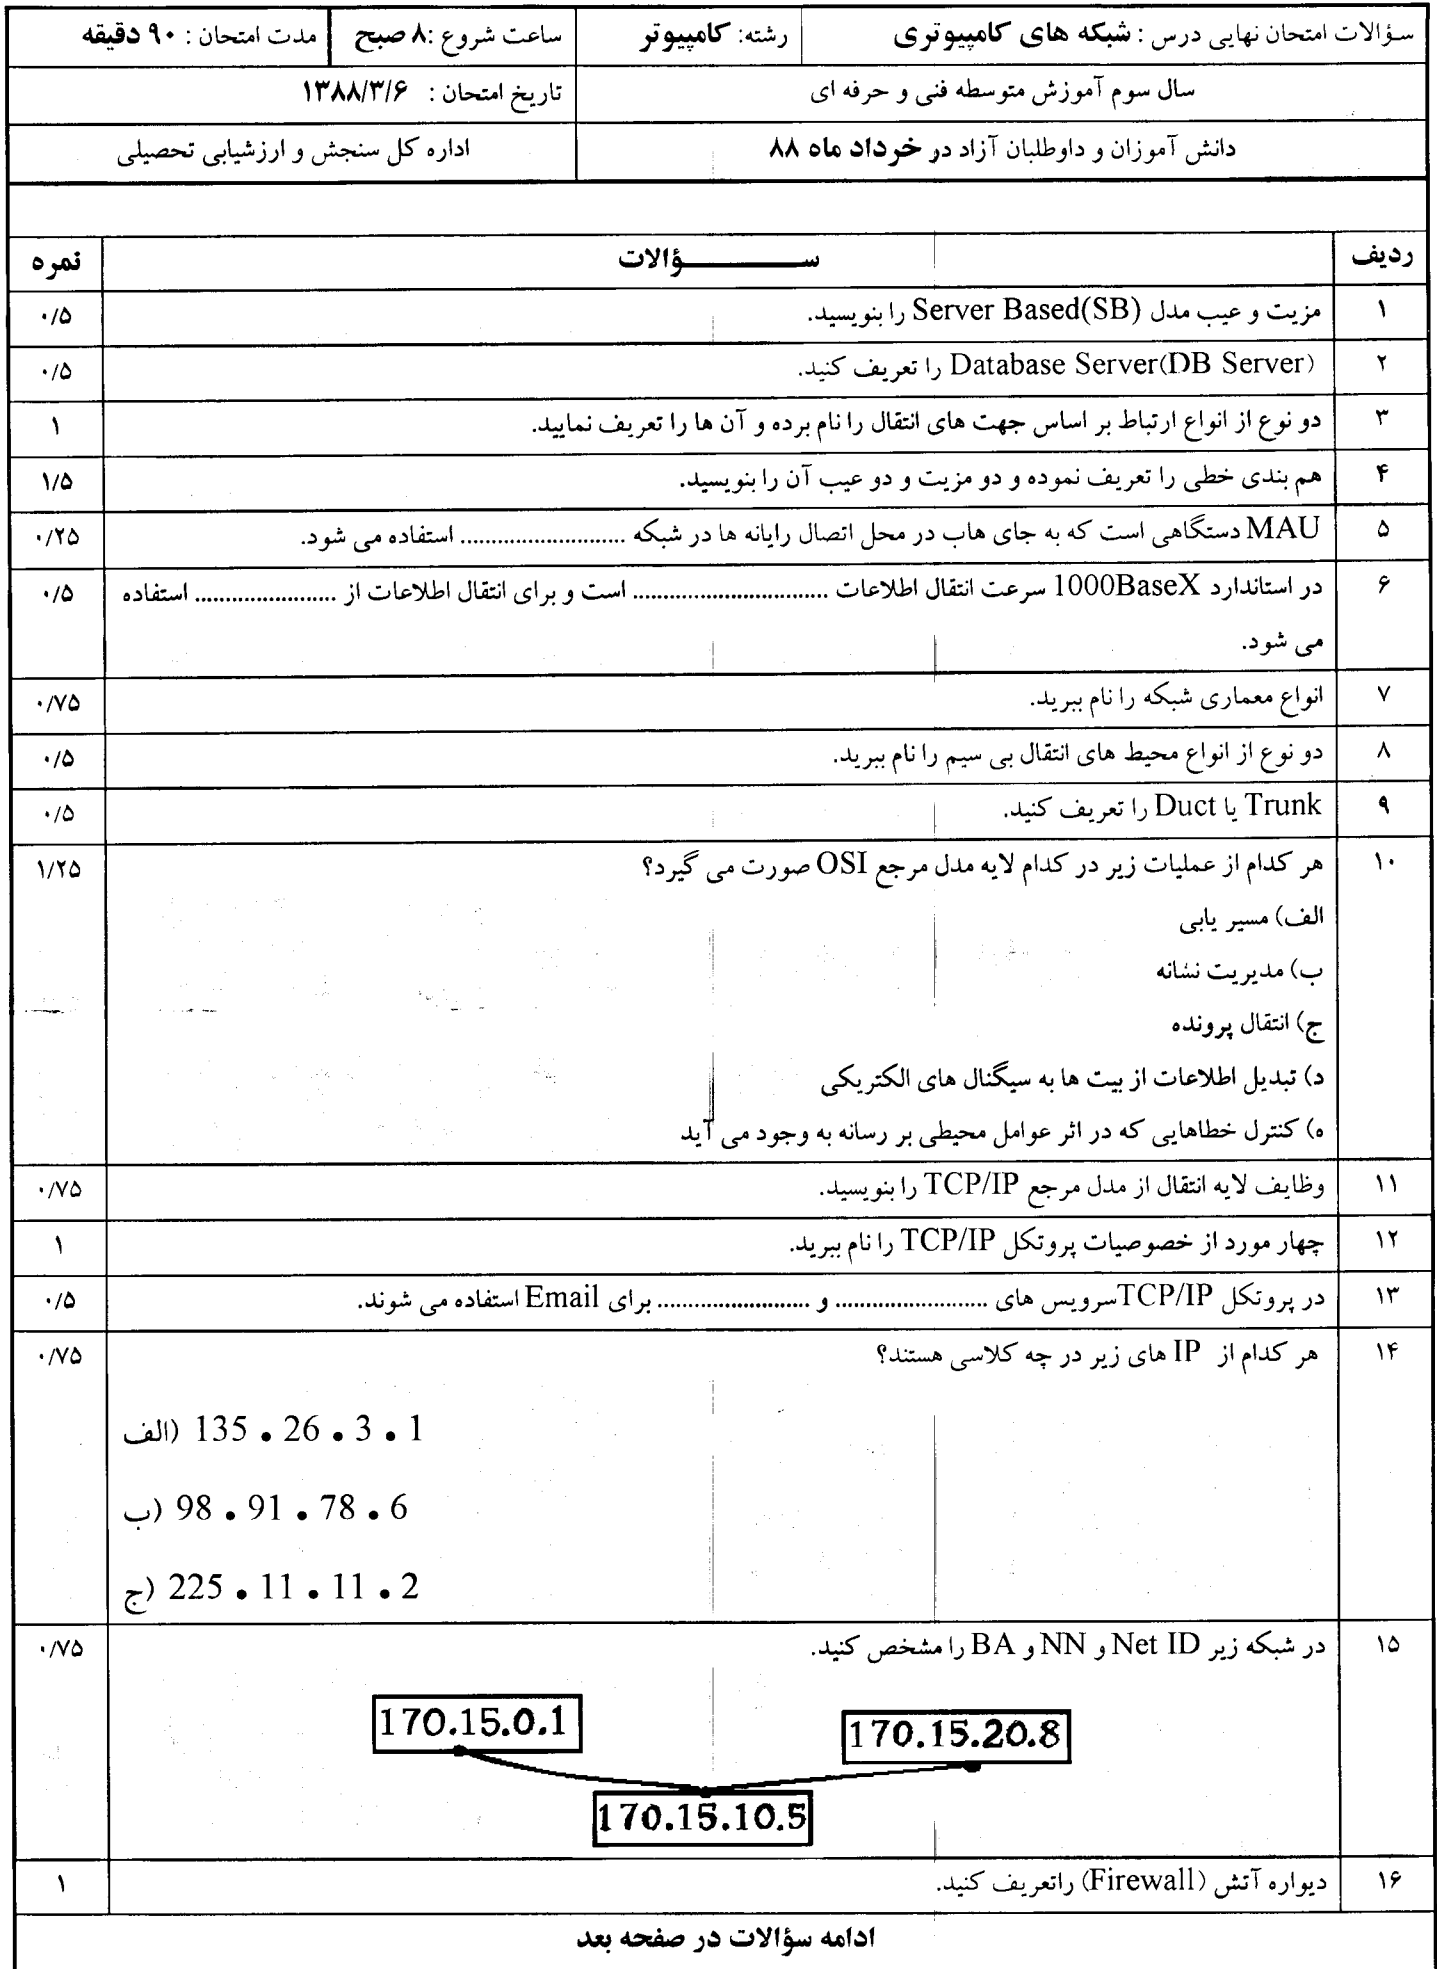 سؤالات امتحان نهایی درس : شبکه های کامپیوتری رشته: کامپیوتر ساعت شروع :۸ صبح مدت امتحان : ۹۰ دقیقه
سال سوم آموزش متوسطه فنی و حرفه ای تاریخ امتحان : ۱۳۸۸/۳/۶
دانش آموزان و داوطلبان آزاد در خرداد ماه ۸۸ اداره کل سنجش و ارزشیابی تحصیلی
ردیف ســـــــــؤالات نمره
۱ مزیت و عیب مدل Server Based(SB) را بنویسید. ۰/۵
۲ Database Server(DB Server) را تعریف کنید. ۰/۵
۳ دو نوع از انواع ارتباط بر اساس جهت های انتقال را نام برده و آن ها را تعریف نمایید. ۱
۴ هم بندی خطی را تعریف نموده و دو مزیت و دو عیب آن را بنویسید. ۱/۵
۵ MAU دستگاهی است که به جای هاب در محل اتصال رایانه ها در شبکه ........................... استفاده می شود. ۰/۲۵
۶ در استاندارد 1000BaseX سرعت انتقال اطلاعات ................................ است و برای انتقال اطلاعات از ....................... استفاده ۰/۵
می شود.
۷ انواع معماری شبکه را نام ببرید. ۰/۷۵
۸ دو نوع از انواع محیط های انتقال بی سیم را نام ببرید. ۰/۵
۹ Trunk یا Duct را تعریف کنید. ۰/۵
۱۰ هر کدام از عملیات زیر در کدام لایه مدل مرجع OSI صورت می گیرد؟ ۱/۲۵
الف) مسیر یابی
ب) مدیریت نشانه
ج) انتقال پرونده
د) تبدیل اطلاعات از بیت ها به سیگنال های الکتریکی
ه) کنترل خطاهایی که در اثر عوامل محیطی بر رسانه به وجود می آید
۱۱ وظایف لایه انتقال از مدل مرجع TCP/IP را بنویسید. ۰/۷۵
۱۲ چهار مورد از خصوصیات پروتکل TCP/IP را نام ببرید. ۱
۱۳ در پروتکل TCP/IPسرویس های ......................... و ......................... برای Email استفاده می شوند. ۰/۵
۱۴ هر کدام از IP های زیر در چه کلاسی هستند؟ ۰/۷۵
الف) 135 . 26 . 3 . 1
ب) 98 . 91 . 78 . 6
ج) 225 . 11 . 11 . 2
۱۵ در شبکه زیر Net ID و NN و BA را مشخص کنید. ۰/۷۵
170.15.0.1
170.15.20.8
170.15.10.5
۱۶ دیواره آتش (Firewall) راتعریف کنید. ۱
ادامه سؤالات در صفحه بعد